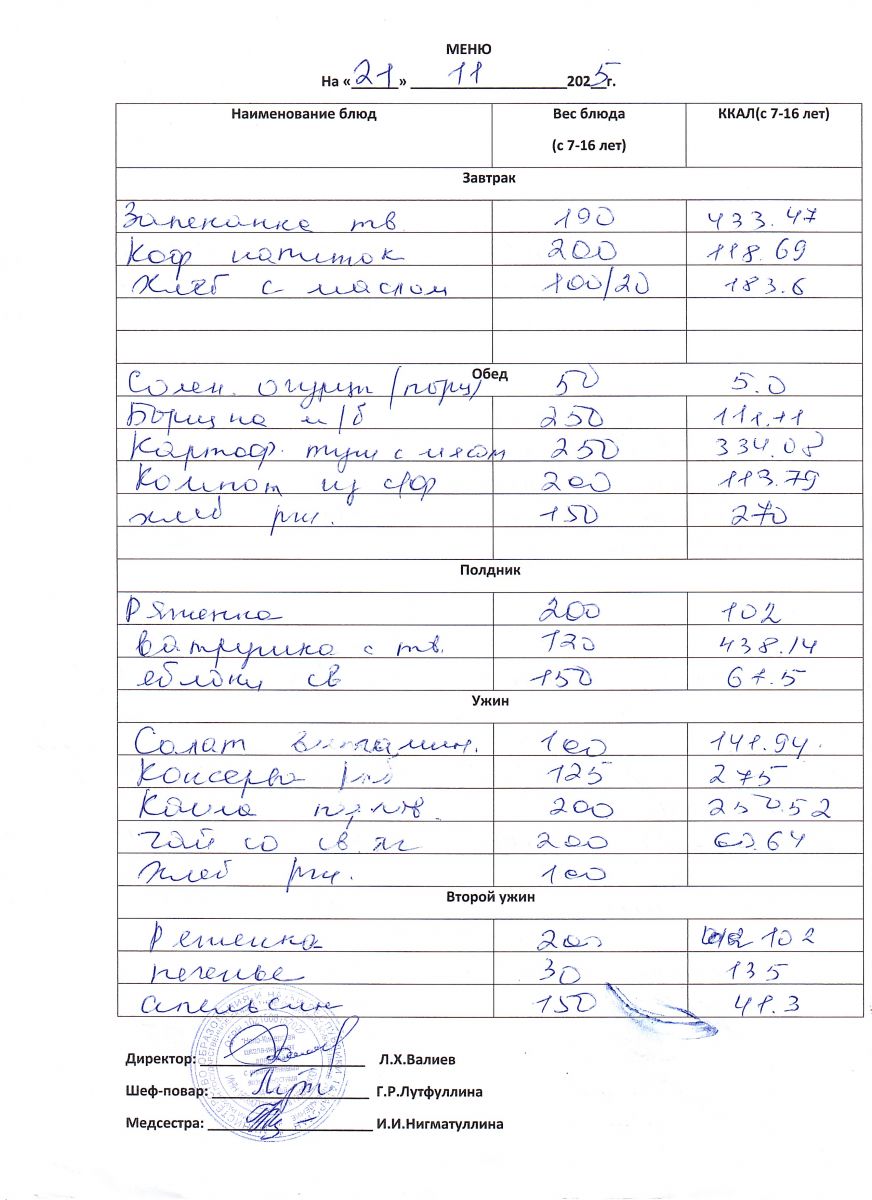 МЕНЮ
На «21» 11 2025 г.
Наименование блюд Вес блюда (с 7-16 лет) ККАЛ(с 7-16 лет)
Завтрак
Запеканка тв 190 433.47
Коф напиток 200 118.69
Хлеб с маслом 100/20 183.6
Обед
Солен. огурцы (порц) 50 5.0
Борщ на м/б 250 111.11
Картоф. туш с мясом 250 334.08
Компот из с/ф 200 113.79
хлеб рж. 150 270
Полдник
Ряженка 200 102
ватрушка с тв. 120 438.14
яблоки св 150 67.5
Ужин
Салат витамин. 100 141.94
Консерва 125 275
Каша 200 250.52
чай со св. яг 200 60.64
Хлеб рж. 100
Второй ужин
Ряженка 200 102
печенье 30 135
апельсин 150 41.3
Директор: Л.Х.Валиев
Шеф-повар: Г.Р.Лутфуллина
Медсестра: И.И.Нигматуллина